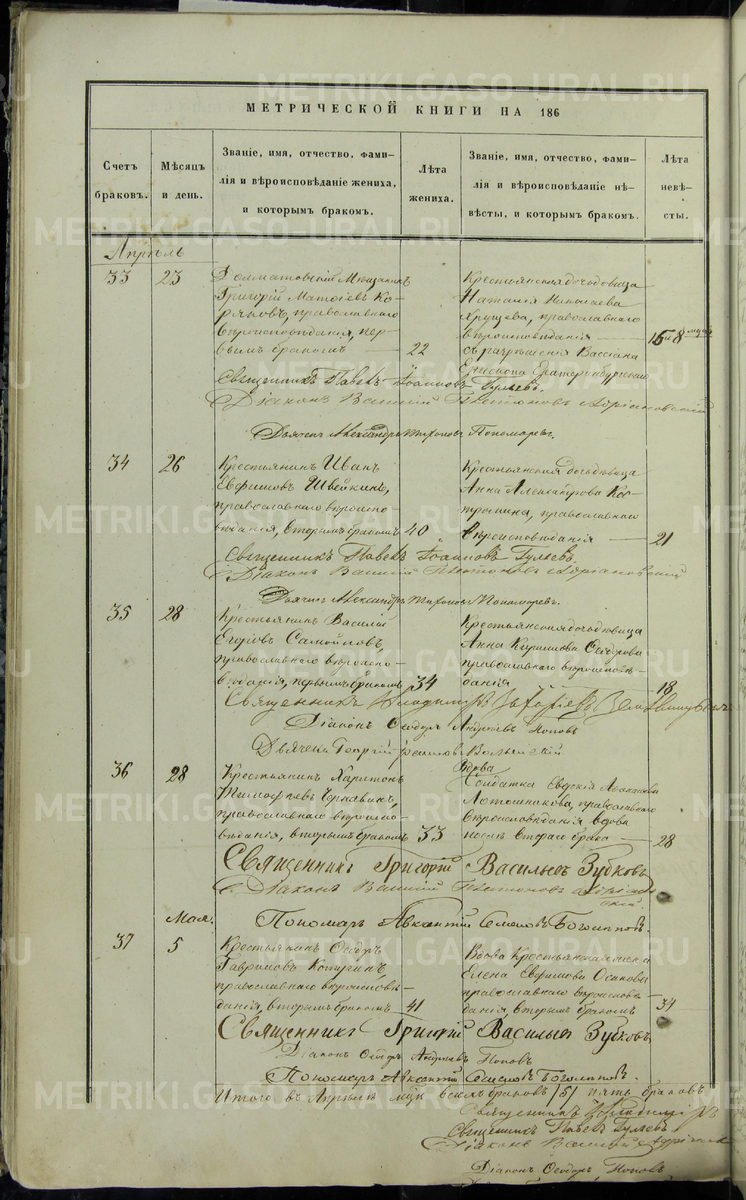 МЕТРИЧЕСКОЙ КНИГИ НА 186
Счетъ браковъ.
Мѣсяцъ и день.
Званіе, имя, отчество, фами-
лія и вѣроисповѣданіе жениха,
и которымъ бракомъ.
Лѣта жениха.
Званіе, имя, отчество, фами-
лія и вѣроисповѣданіе не-
вѣсты, и которымъ бракомъ.
Лѣта невѣ-
сты.
Апрѣль
33 23
Долматовскій Мещанинъ
Григорій Матѳіевъ Ко-
ряковъ, православнаго
вѣроисповѣданія, пер-
вымъ бракомъ 22
Крестьянская дочь девица
Наталія Николаева
Хрущева, православнаго
вѣроисповѣданія
съ разрѣшенія Вассіана
Епископа Екатеринбургскаго
Священникъ Павелъ Іоанновъ Гуляевъ.
Діаконъ Василій Платоновъ Адріановскій
Дьячекъ Александръ Тихоновъ Пономаревъ.
34 26
Крестьянинъ Иванъ
Евфимовъ Швейкинъ,
православнаго вѣроиспо-
вѣданія, вторымъ бракомъ 40
Крестьянская дочь девица
Анна Александрова Кос-
тромина, православнаго
вѣроисповѣданія 21
Священникъ Павелъ Іоанновъ Гуляевъ
Діаконъ Василій Платоновъ Адріановскій
Дьячекъ Александръ Тихоновъ Пономаревъ.
35 28
Крестьянинъ Василій
Егоровъ Самойловъ,
православнаго вѣроиспо-
вѣданія, первымъ бракомъ 34
Крестьянская дочь девица
Анна Кирилова Ѳедорова
православнаго вѣроисповѣ-
данія 18
Священникъ Владиміръ
Діаконъ Ѳеодоръ Андреевъ Поповъ
Дьячекъ Георгій
36 28
Крестьянинъ Харитонъ
Тимофѣевъ Чернавинъ,
православнаго вѣроиспо-
вѣданія, вторымъ бракомъ 33
Вдова
Солдатка Евдокія
Лотошникова, православнаго
вѣроисповѣданія вдова
послѣ втораго брака 28
Священникъ Григорій Васильевъ Зубковъ
Діаконъ Василій Платоновъ Адріанов-
скій.
Пономарь Авксентій
Мая.
37 5
Крестьянинъ Ѳеодоръ
Гавриловъ Кочугинъ,
православнаго вѣроисповѣ-
данія, вторымъ бракомъ 41
Вдова Крестьянская жена
Елена Евфимова Осипова
православнаго вѣроисповѣ-
данія, вторымъ бракомъ 34
Священникъ Григорій Васильевъ Зубковъ
Діаконъ Ѳеодоръ Андреевъ Поповъ
Пономарь Авксентій
Итого въ Апрелѣ м-цѣ всехъ браковъ /5/ пять браковъ
Священникъ Владиміръ
Священникъ Павелъ Гуляевъ
Діаконъ Василій Адріановскій
Діаконъ Ѳеодоръ Поповъ
METRIKI.GASO-URAL.RU